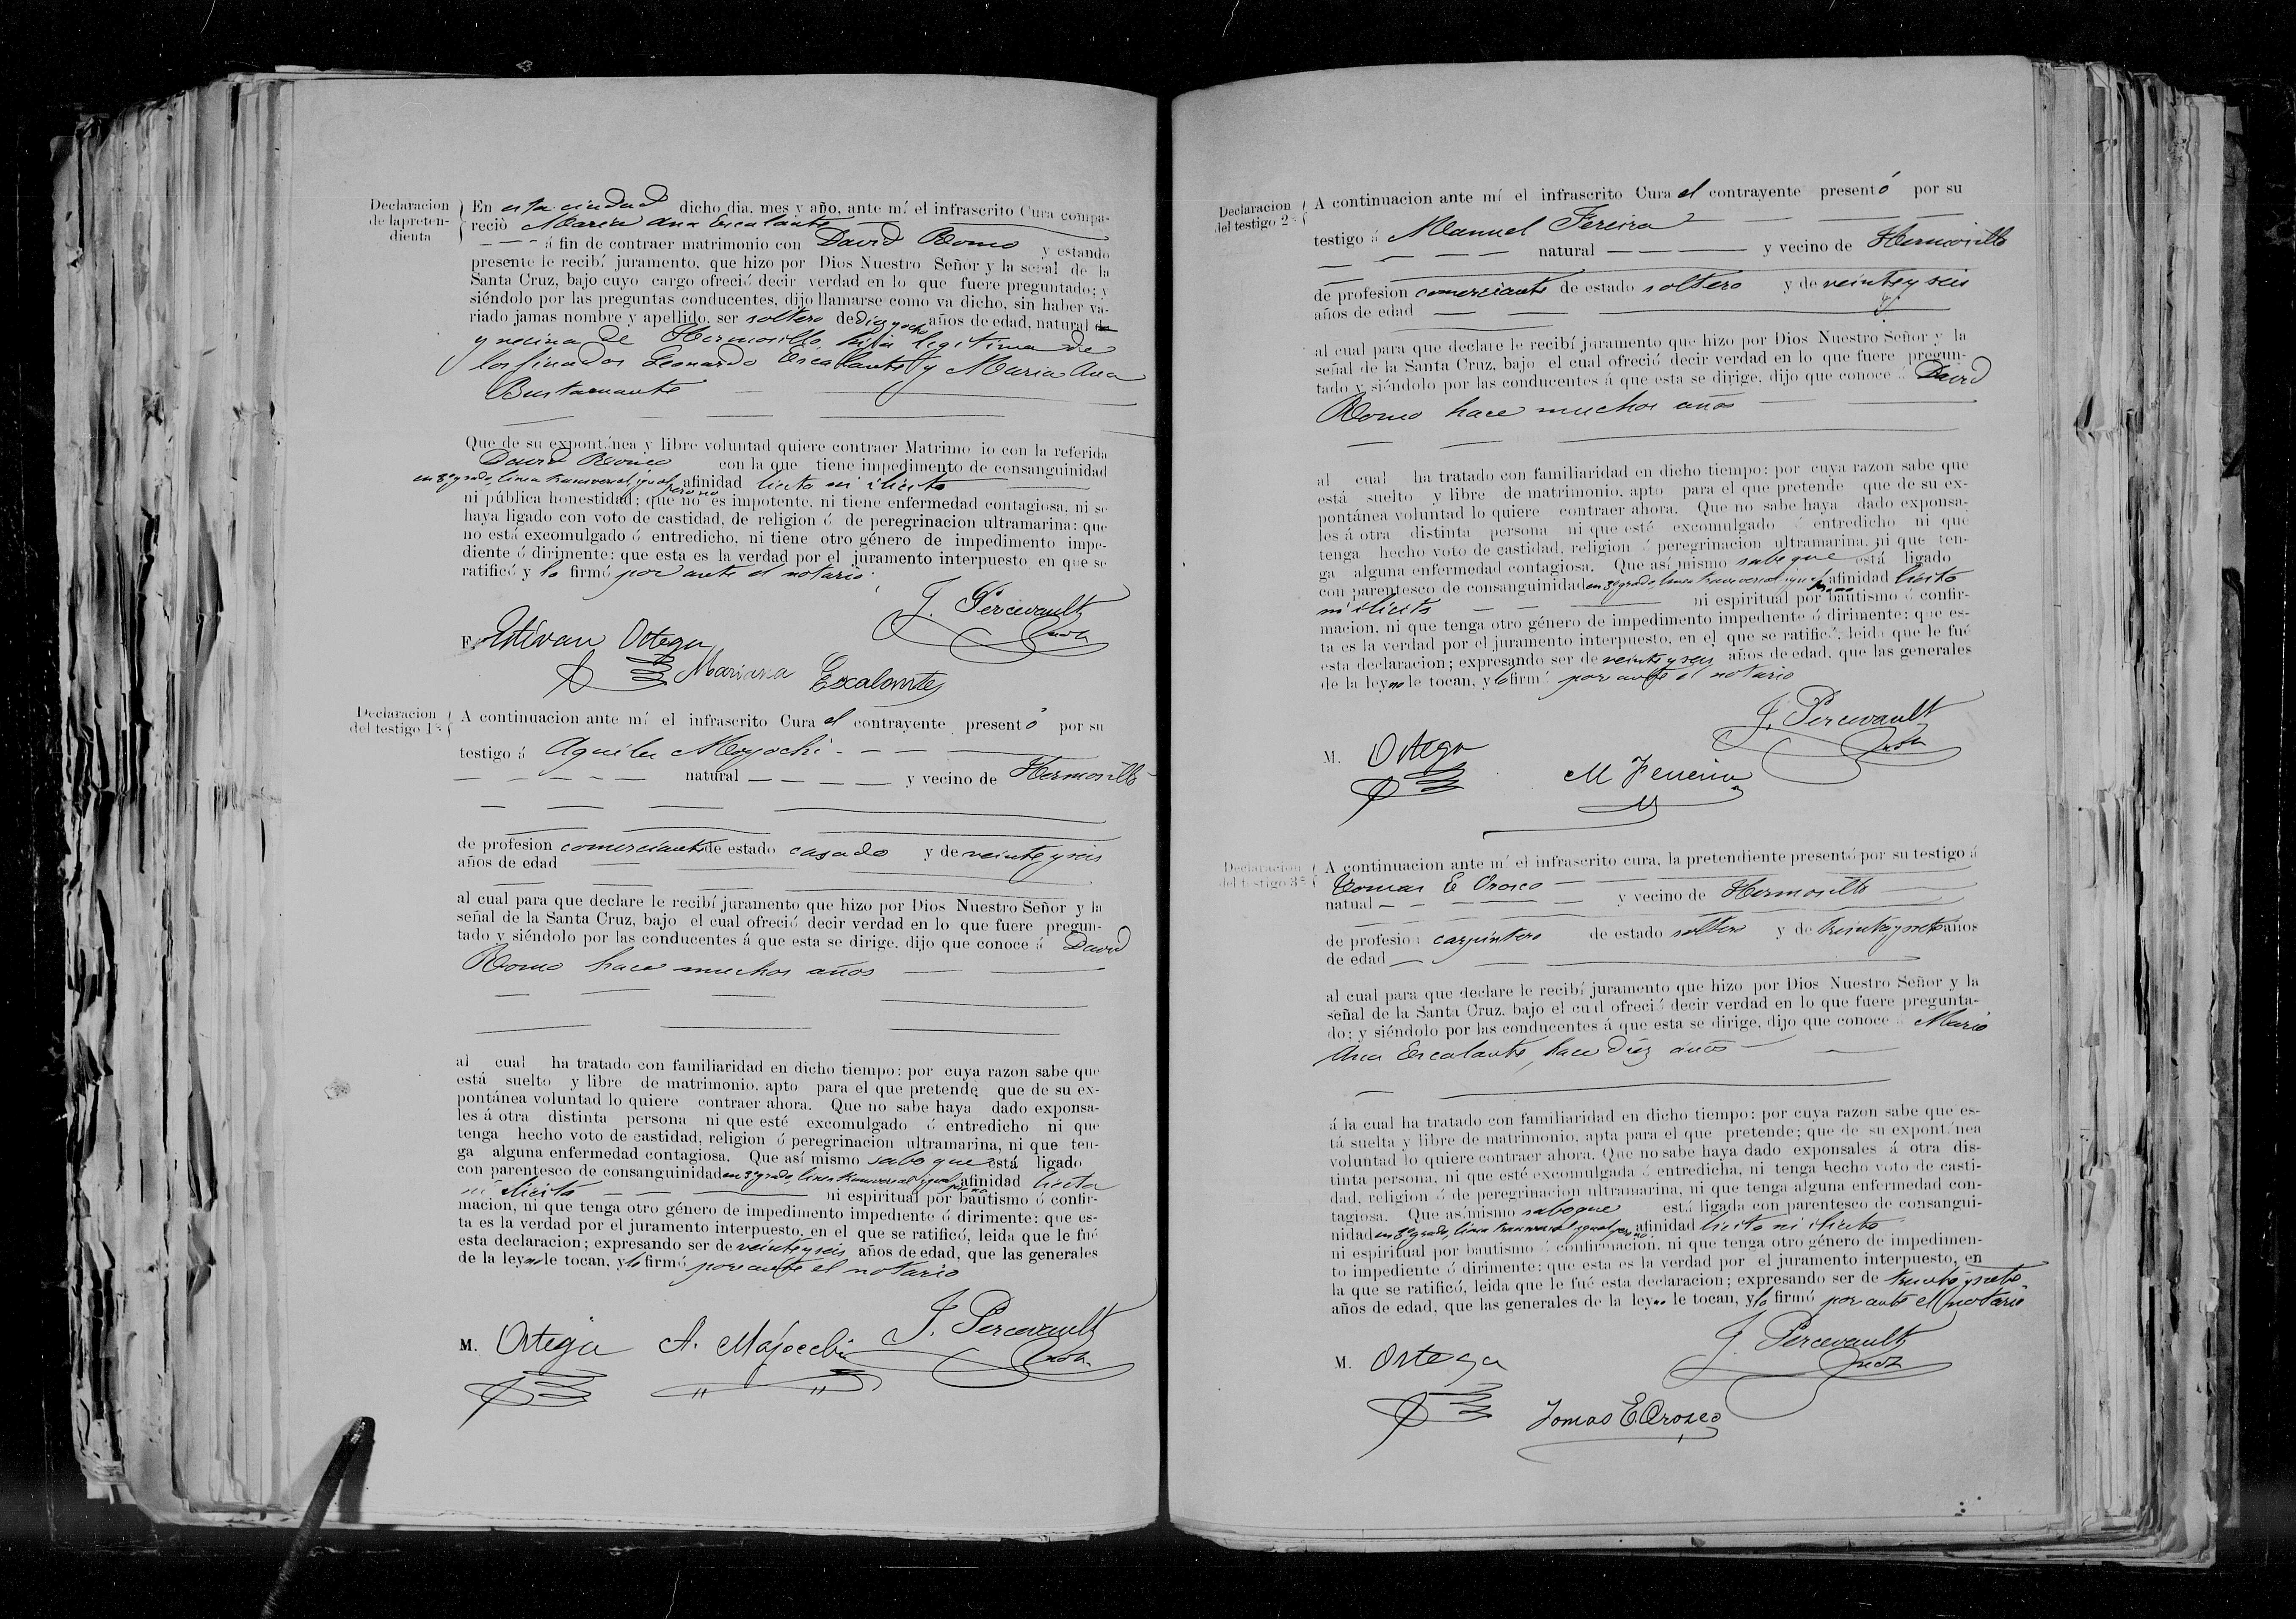 Declaracion
de la preten-
dienta
En esta ciudad dicho dia, mes y año, ante mí el infrascrito Cura compa-
reció Maria Ana Escalante
á fin de contraer matrimonio con David Romo y estando
presente le recibí juramento, que hizo por Dios Nuestro Señor y la señal de la
Santa Cruz, bajo cuyo cargo ofreció decir verdad en lo que fuere preguntado; y
siéndolo por las preguntas conducentes, dijo llamarse como va dicho, sin haber va-
riado jamas nombre y apellido, ser soltera de diez y ocho años de edad, natural
y vecina de Hermosillo, hija legitima de
los finados Leonardo Escalante y Maria Ana
Bustamante
Que de su expontánea y libre voluntad quiere contraer Matrimonio con la referida
David Romo con la que tiene impedimento de consanguinidad
en 3er grado, linea transversal igual, pero no afinidad licita ni ilicita
ni pública honestidad; que no es impotente, ni tiene enfermedad contagiosa, ni se
haya ligado con voto de castidad, de religion ó de peregrinacion ultramarina: que
no está excomulgado ó entredicho, ni tiene otro género de impedimento impe-
diente ó dirimente: que esta es la verdad por el juramento interpuesto en que se
ratificó y lo firmó por ante el notario
J. Percevault
F. Estivan Ortega
Mariana Escalante
Declaracion
del testigo 1º
A continuacion ante mí el infrascrito Cura el contrayente presentó por su
testigo á Aquiles Moyochi
natural y vecino de Hermosillo
de profesion comerciante de estado casado y de veinte y seis
años de edad
al cual para que declare le recibí juramento que hizo por Dios Nuestro Señor y la
señal de la Santa Cruz, bajo el cual ofreció decir verdad en lo que fuere pregun-
tado y siéndolo por las conducentes á que esta se dirige, dijo que conoce á David
Romo hace muchos años
al cual ha tratado con familiaridad en dicho tiempo: por cuya razon sabe que
está suelto y libre de matrimonio, apto para el que pretende que de su ex-
pontánea voluntad lo quiere contraer ahora. Que no sabe haya dado exponsa-
les á otra distinta persona ni que esté excomulgado ó entredicho ni que
tenga hecho voto de castidad, religion ó peregrinacion ultramarina, ni que ten-
ga alguna enfermedad contagiosa. Que así mismo sabe que está ligado
con parentesco de consanguinidad en 3er grado, linea transversal igual pero no afinidad licita
ni ilicita ni espiritual por bautismo ó confir-
macion, ni que tenga otro género de impedimento impediente ó dirimente: que es-
ta es la verdad por el juramento interpuesto, en el que se ratificó, leida que le fué
esta declaracion; expresando ser de veinte y seis años de edad, que las generales
de la ley no le tocan, y lo firmó por ante el notario
J. Percevault
M. Ortega A. Majocchi
Declaracion
del testigo 2º
A continuacion ante mí el infrascrito Cura el contrayente presentó por su
testigo á Manuel Fereira
natural y vecino de Hermosillo
de profesion comerciante de estado soltero y de veinte y seis
años de edad
al cual para que declare le recibí juramento que hizo por Dios Nuestro Señor y la
señal de la Santa Cruz, bajo el cual ofreció decir verdad en lo que fuere pregun-
tado y siéndolo por las conducentes á que esta se dirige, dijo que conoce á David
Romo hace muchos años
al cual ha tratado con familiaridad en dicho tiempo: por cuya razon sabe que
está suelto y libre de matrimonio, apto para el que pretende que de su ex-
pontánea voluntad lo quiere contraer ahora. Que no sabe haya dado exponsa-
les á otra distinta persona ni que esté excomulgado ó entredicho ni que
tenga hecho voto de castidad, religion ó peregrinacion ultramarina, ni que ten-
ga alguna enfermedad contagiosa. Que así mismo sabe que está ligado
con parentesco de consanguinidad en 3er grado, linea transversal igual pero no afinidad licita
ni ilicita ni espiritual por bautismo ó confir-
macion, ni que tenga otro género de impedimento impediente ó dirimente: que es-
ta es la verdad por el juramento interpuesto, en el que se ratificó, leida que le fué
esta declaracion; expresando ser de veinte y seis años de edad, que las generales
de la ley no le tocan, y lo firmó por ante el notario
J. Percevault
M. Ortega
M Fereira
Declaracion
del testigo 3º
A continuacion ante mí el infrascrito cura, la pretendiente presentó por su testigo á
Tomas E Orosco
natual y vecino de Hermosillo
de profesion carpintero de estado soltero y de treinta y siete años
de edad
al cual para que declare le recibí juramento que hizo por Dios Nuestro Señor y la
señal de la Santa Cruz, bajo el cual ofreció decir verdad en lo que fuere pregunta-
do; y siéndolo por las conducentes á que esta se dirige, dijo que conoce á Maria
Ana Escalante, hace diez años
á la cual ha tratado con familiaridad en dicho tiempo: por cuya razon sabe que es-
tá suelta y libre de matrimonio, apta para el que pretende; que de su expontánea
voluntad lo quiere contraer ahora. Que no sabe haya dado exponsales á otra dis-
tinta persona, ni que esté excomulgada ó entredicha, ni tenga hecho voto de casti-
dad, religion ó de peregrinacion ultramarina, ni que tenga alguna enfermedad con-
tagiosa. Que así mismo sabe que está ligada con parentesco de consangui-
nidad en 3er grado, linea transversal igual pero no afinidad licita ni ilicita
ni espiritual por bautismo ó confirmación, ni que tenga otro género de impedimen-
to impediente ó dirimente: que esta es la verdad por el juramento interpuesto, en
la que se ratificó, leida que le fué esta declaracion; expresando ser de treinta y siete
años de edad, que las generales de la ley no le tocan, y lo firmó por ante el notario
J. Percevault
M. Ortega
Tomas E Orozco